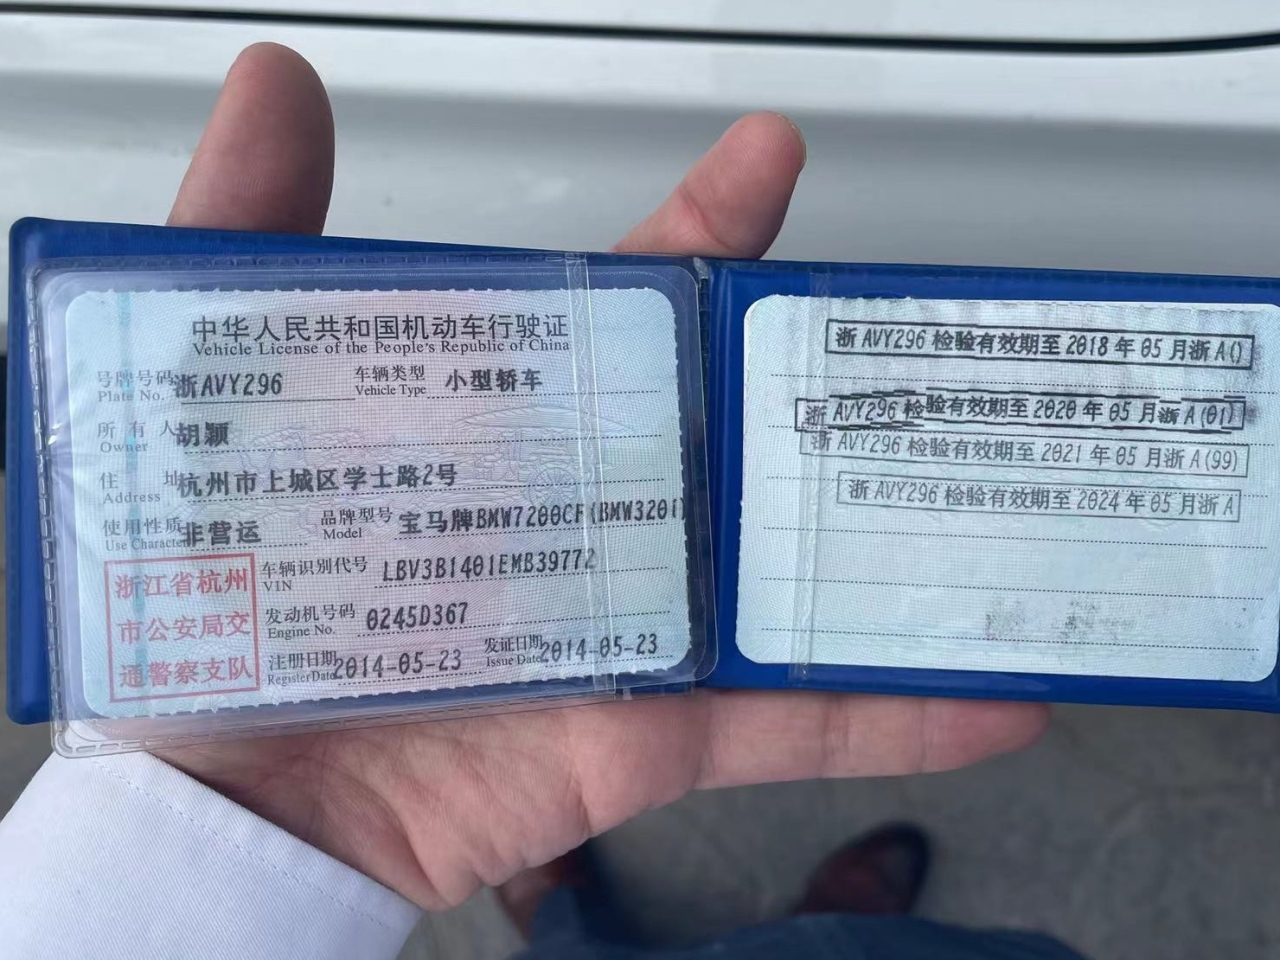 中华人民共和国机动车行驶证
Vehicle License of the People's Republic of China
号牌号码 浙AVY296 车辆类型 小型轿车
Plate No. Vehicle Type
所有人 胡颖
Owner
住址 杭州市上城区学士路2号
Address
使用性质 非营运 品牌型号 宝马牌BMW7200CF(BMW320i)
Use Character Model
浙江省杭州
市公安局交
通警察支队
车辆识别代号 LBV3B1401EMB39772
VIN
发动机号码 0245D367
Engine No.
注册日期 2014-05-23 发证日期 2014-05-23
Register Date Issue Date
浙AVY296 检验有效期至 2018 年 05 月浙A()
浙AVY296 检验有效期至 2020 年 05 月浙A(01)
浙AVY296 检验有效期至 2021 年 05 月浙A(99)
浙AVY296 检验有效期至 2024 年 05 月浙A